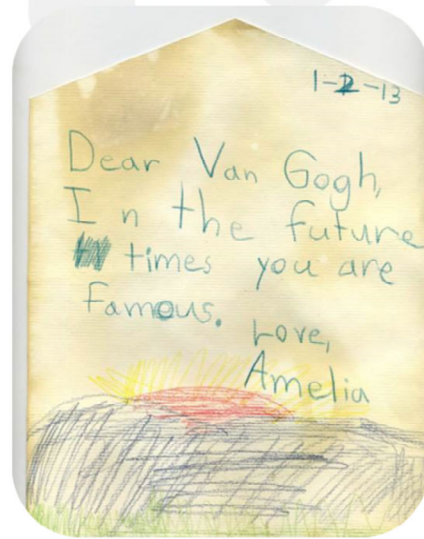 1-2-13
Dear Van Gogh,
In the future
times you are
famous.
Love,
Amelia